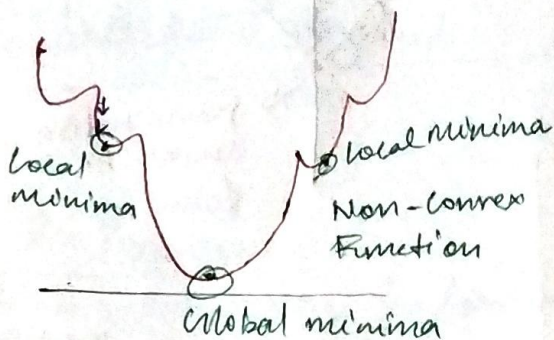 Local
minima
Local Minima
Non-Convex
Function
Global minima